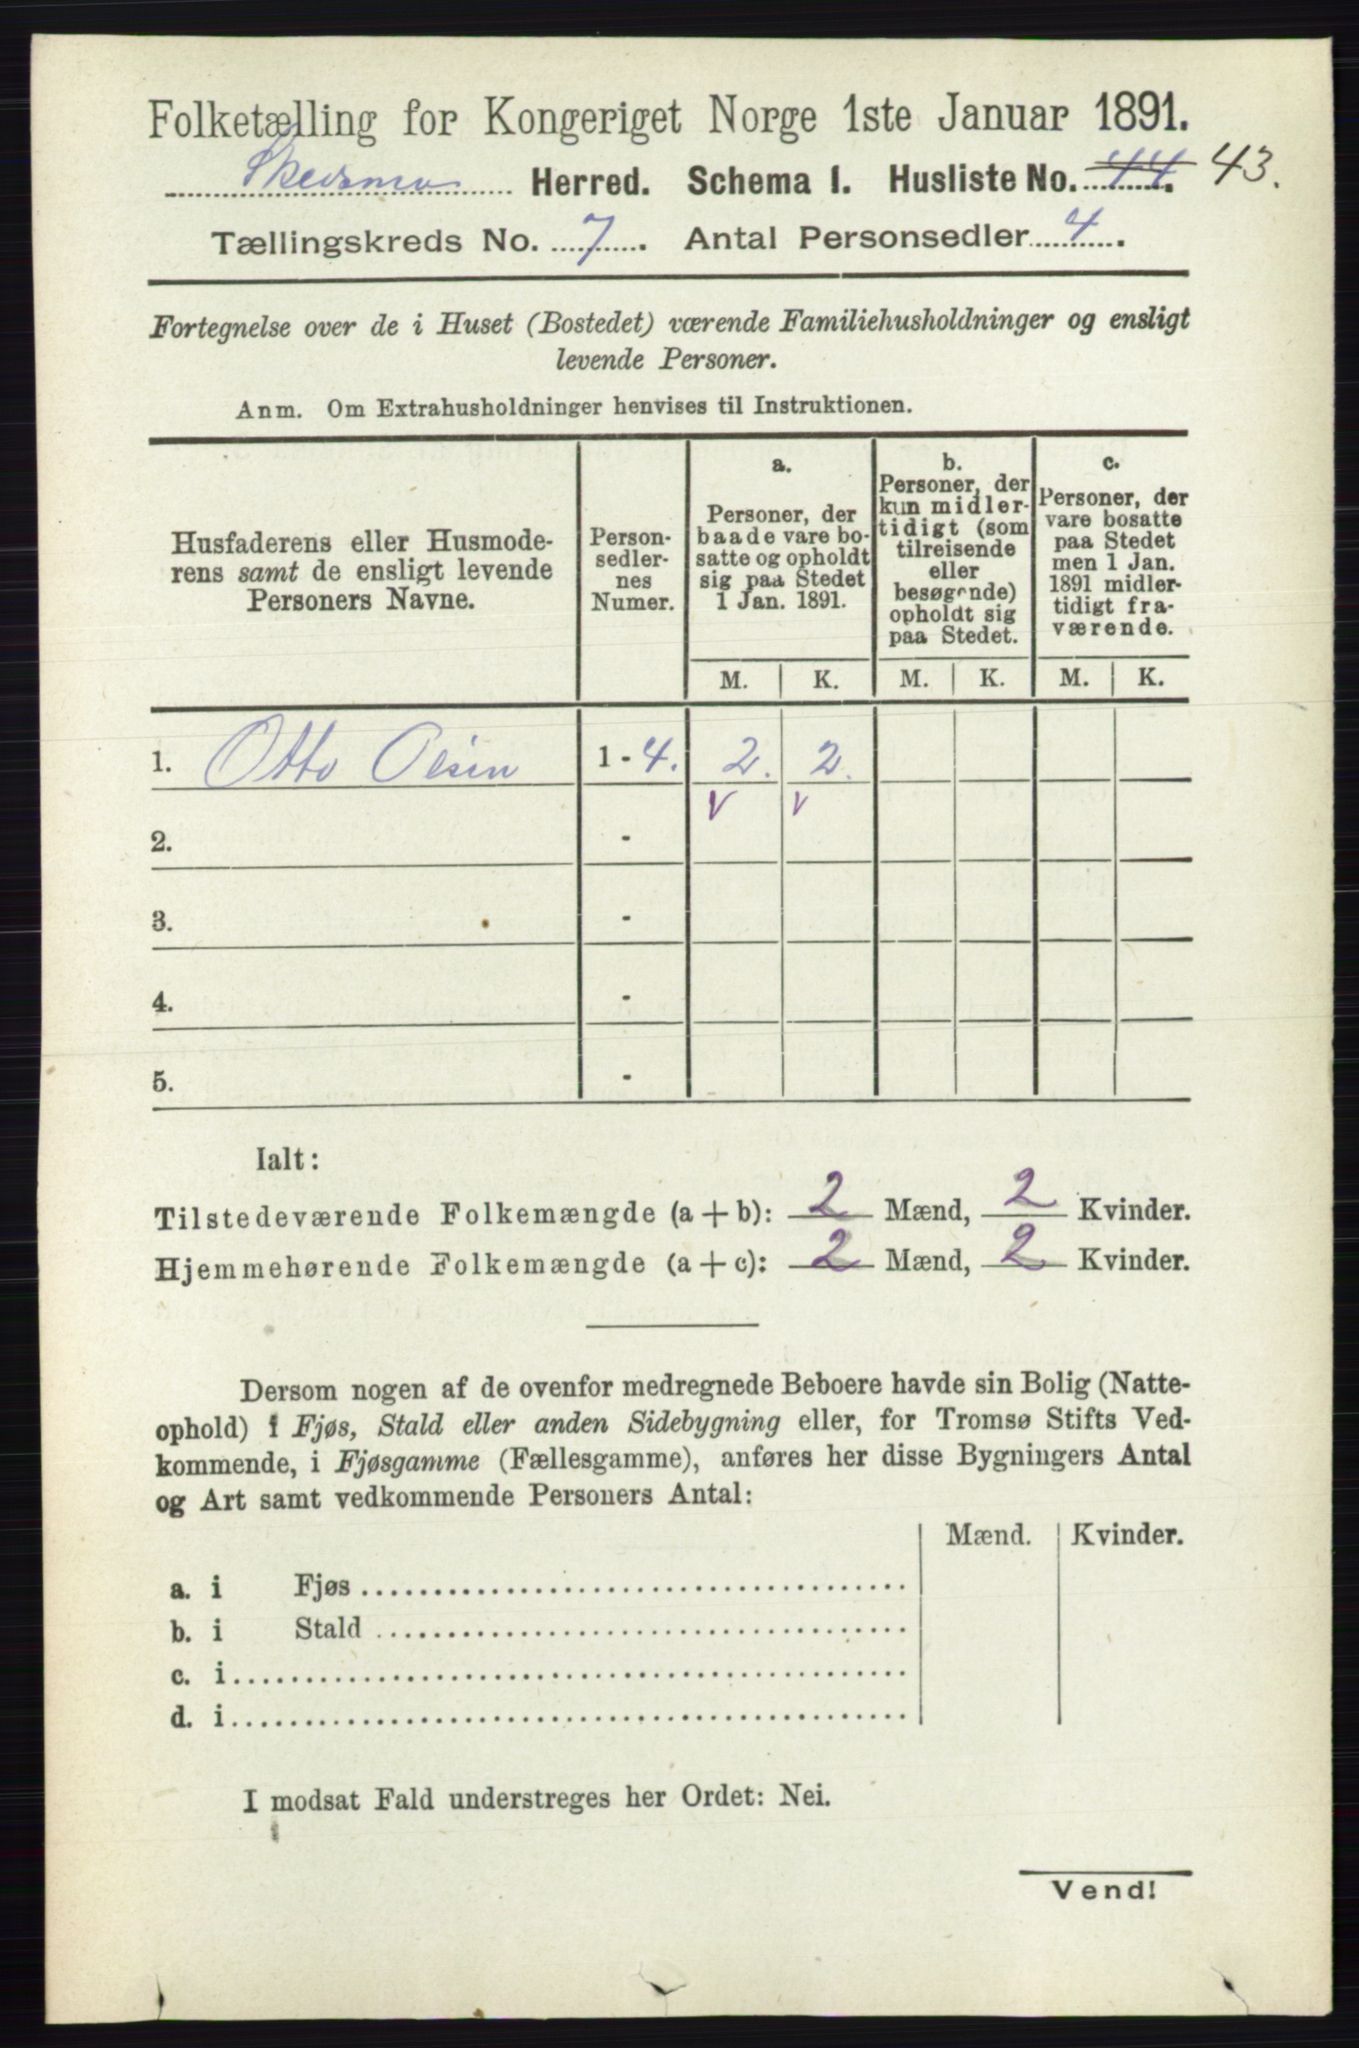 Folketælling for Kongeriget Norge 1ste Januar 1891.
Skedsmo Herred. Schema 1. Husliste No. 44. 43.
Tællingskreds No. 7. Antal Personsedler 4.
Fortegnelse over de i Huset (Bostedet) værende Familiehusholdninger og ensligt
levende Personer.
Anm. Om Extrahusholdninger henvises til Instruktionen.
Husfaderens eller Husmode-
rens samt de ensligt levende
Personers Navne.
Person-
sedler-
nes
Numer.
a.
Personer, der
baade vare bo-
satte og opholdt
sig paa Stedet
1 Jan. 1891.
b.
Personer, der
kun midler-
tidigt (som
tilreisende
eller
besøgende)
opholdt sig
paa Stedet.
c.
Personer, der
vare bosatte
paa Stedet
men 1 Jan.
1891 midler-
tidigt fra-
værende.
M. K. M. K. M. K.
1. Otto Olsen 1 - 4. 2. 2.
v v
2. -
3. -
4. -
5. -
Ialt:
Tilstedeværende Folkemængde (a + b): 2 Mænd, 2 Kvinder.
Hjemmehørende Folkemængde (a + c): 2 Mænd, 2 Kvinder.
Dersom nogen af de ovenfor medregnede Beboere havde sin Bolig (Natte-
ophold) i Fjøs, Stald eller anden Sidebygning eller, for Tromsø Stifts Ved-
kommende, i Fjøsgamme (Fællesgamme), anføres her disse Bygningers Antal
og Art samt vedkommende Personers Antal:
Mænd. Kvinder.
a. i Fjøs
b. i Stald
c. i
d. i
I modsat Fald understreges her Ordet: Nei.
Vend!